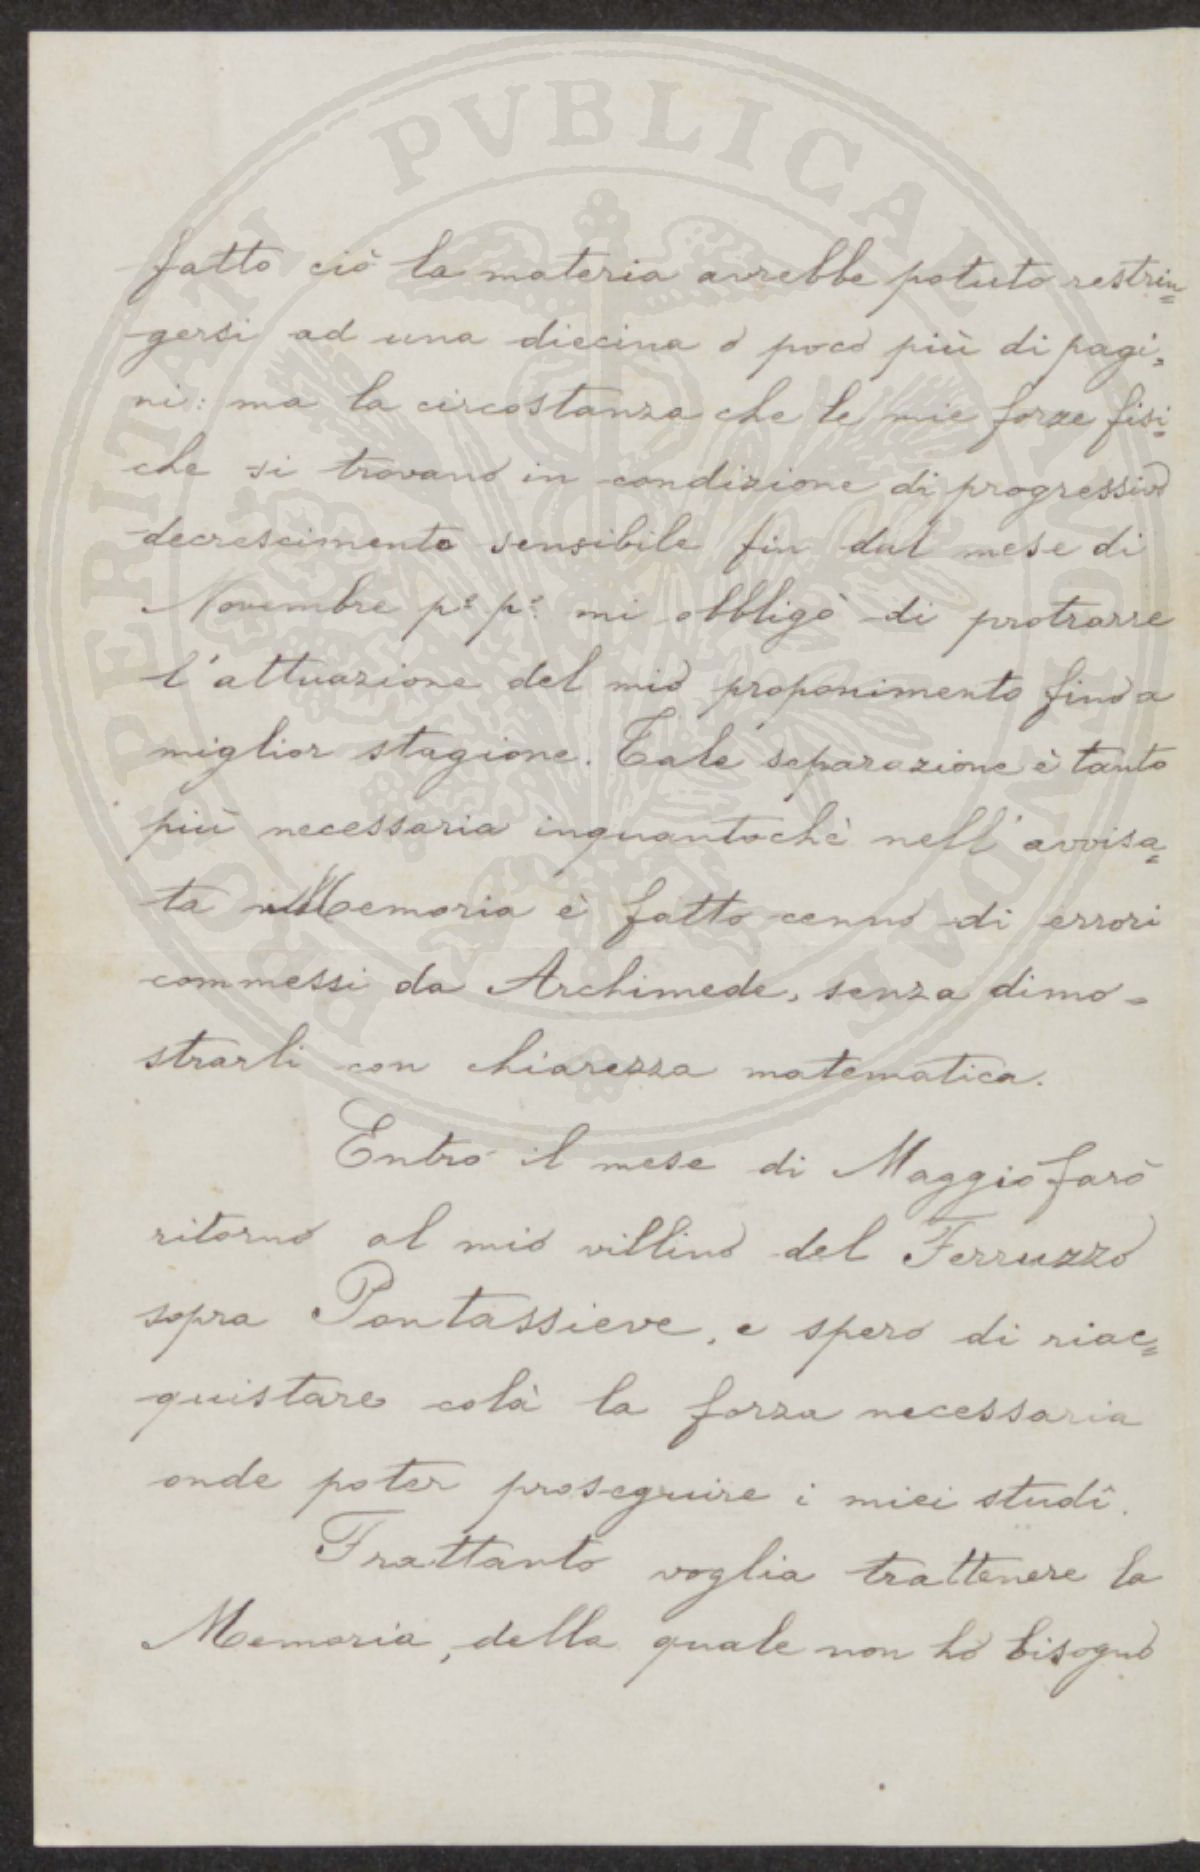 fatto ciò la materia avrebbe potuto restrin=
gersi ad una diecina o poco più di pagi=
ni: ma la circostanza che le mie forze fisi=
che si trovano in condizione di progressivo
decrescimento sensibile fin dal mese di
Novembre p.º p.º mi obbligò di protrarre
l'attuazione del mio proponimento fino a
miglior stagione. Tale separazione è tanto
più necessaria inquantochè nell'avvisa=
ta Memoria è fatto cenno di errori
commessi da Archimede, senza dimo=
strarli con chiarezza matematica.
Entro il mese di Maggio farò
ritorno al mio villino del Ferruzzo
sopra Pontassieve, e spero di riac=
quistare colà la forza necessaria
onde poter proseguire i miei studî.
Frattanto voglia trattenere la
Memoria, della quale non ho bisogno